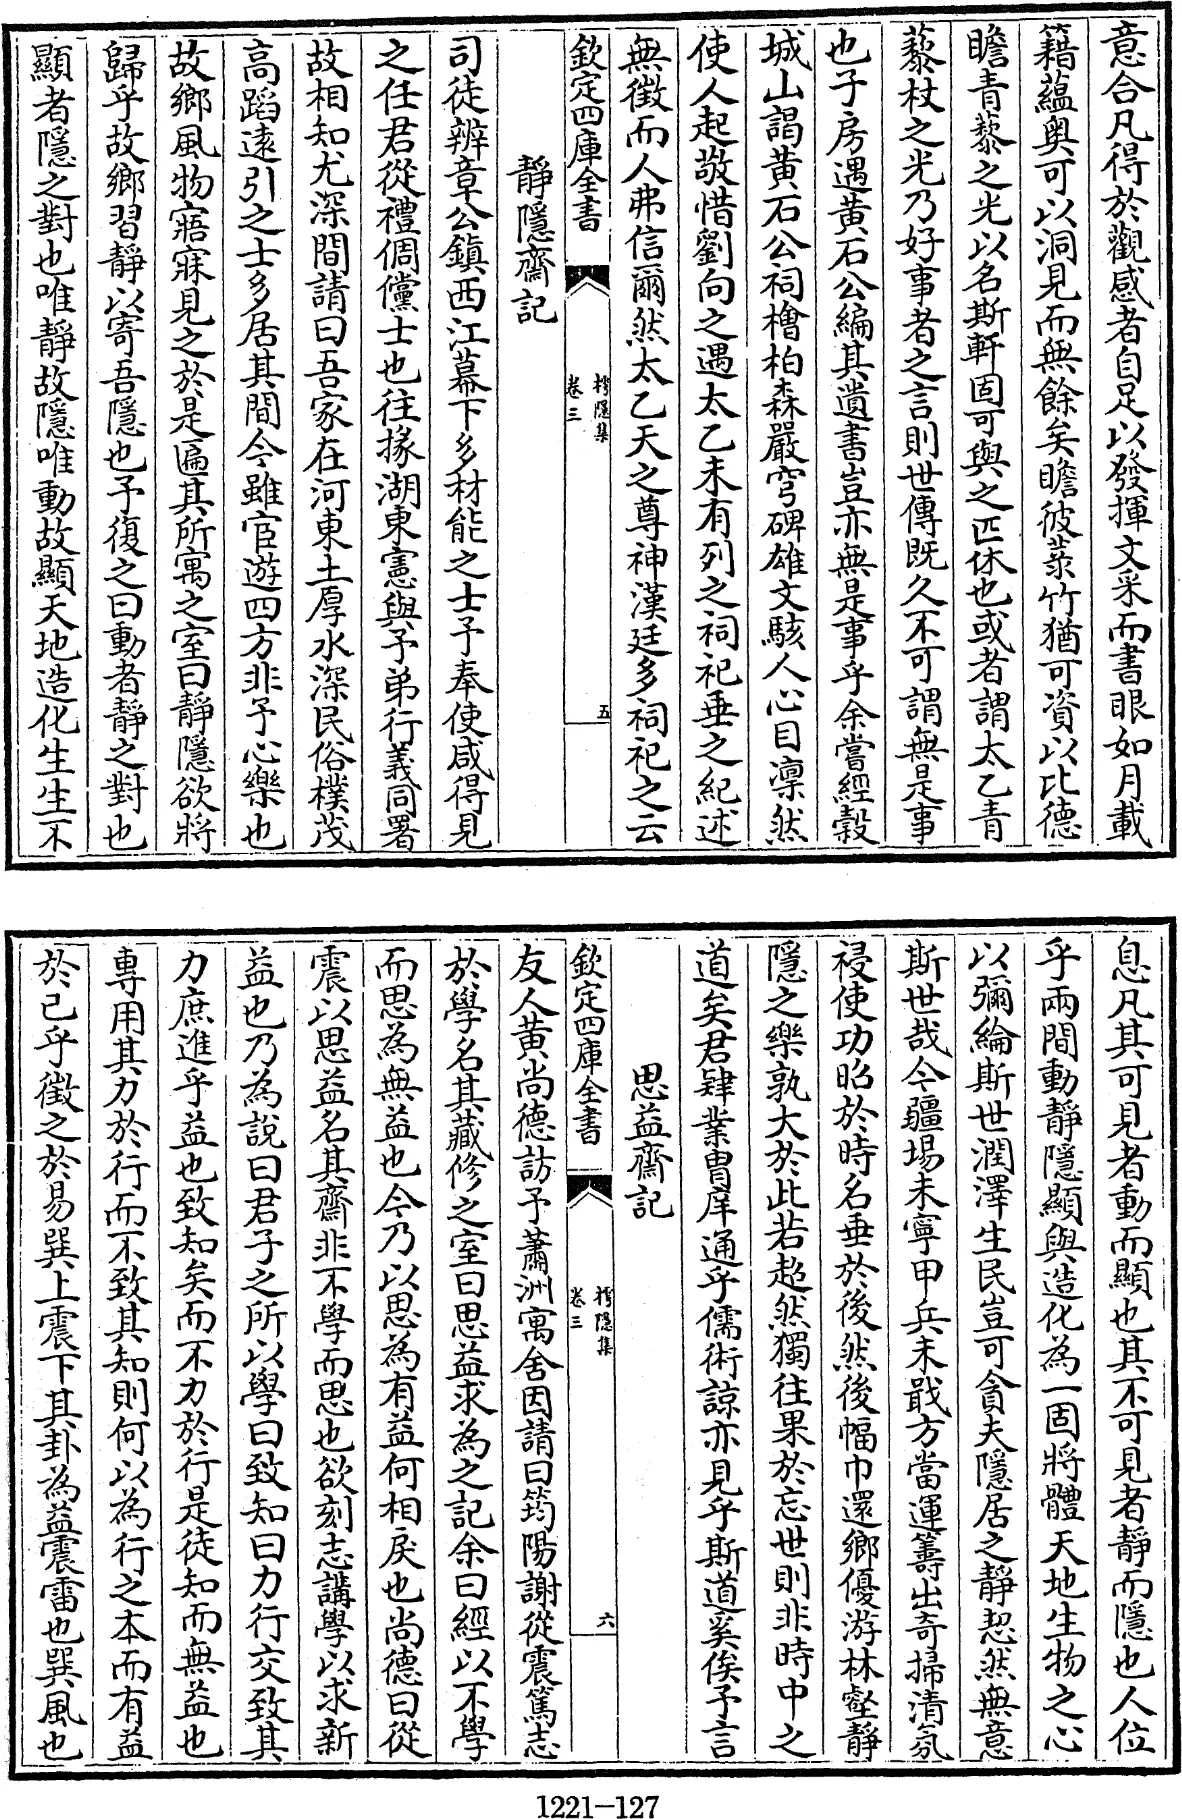 意合凡得於觀感者自足以發揮文采而書眼如月載
籍蘊奧可以洞見而無餘矣瞻彼菉竹猶可資以比德
瞻青藜之光以名斯軒固可與之匹休也或者謂太乙青
藜杖之光乃好事者之言則世傳既久不可謂無是事
也子房遇黄石公編其遺書豈亦無是事乎余嘗經穀
城山謁黄石公祠檜柏森嚴穹碑雄文駭人心目凜然
使人起敬惜劉向之遇太乙未有列之祠祀垂之紀述
無徵而人弗信爾然太乙天之尊神漢廷多祠祀之云
欽定四庫全書
樗隱集
卷三
五
靜隱齋記
司徒辨章公鎮西江幕下多材能之士予奉使咸得見
之任君從禮倜儻士也往掾湖東憲與予弟行義同署
故相知尤深間請曰吾家在河東土厚水深民俗樸茂
高蹈遠引之士多居其間今雖宦遊四方非予心樂也
故鄉風物寤寐見之於是匾其所寓之室曰靜隱欲將
歸乎故鄉習靜以寄吾隱也予復之曰動者靜之對也
顯者隱之對也唯靜故隱唯動故顯天地造化生生不
息凡其可見者動而顯也其不可見者靜而隱也人位
乎兩間動靜隱顯與造化為一固將體天地生物之心
以彌綸斯世潤澤生民豈可貪夫隱居之靜恝然無意
斯世哉今疆埸未寧甲兵未戢方當運籌出奇掃清氛
祲使功昭於時名垂於後然後幅巾還鄉優游林壑靜
隱之樂孰大於此若超然獨往果於忘世則非時中之
道矣君肄業胄庠通乎儒術諒亦見乎斯道奚俟予言
思益齋記
欽定四庫全書
樗隱集
卷三
六
友人黄尚德訪予蕭洲寓舍因請曰筠陽謝從震篤志
於學名其藏修之室曰思益求為之記余曰經以不學
而思為無益也今乃以思為有益何相戾也尚德曰從
震以思益名其齋非不學而思也欲刻志講學以求新
益也乃為說曰君子之所以學曰致知曰力行交致其
力庶進乎益也致知矣而不力於行是徒知而無益也
專用其力於行而不致其知則何以為行之本而有益
於己乎徵之於易巽上震下其卦為益震雷也巽風也
1221-127